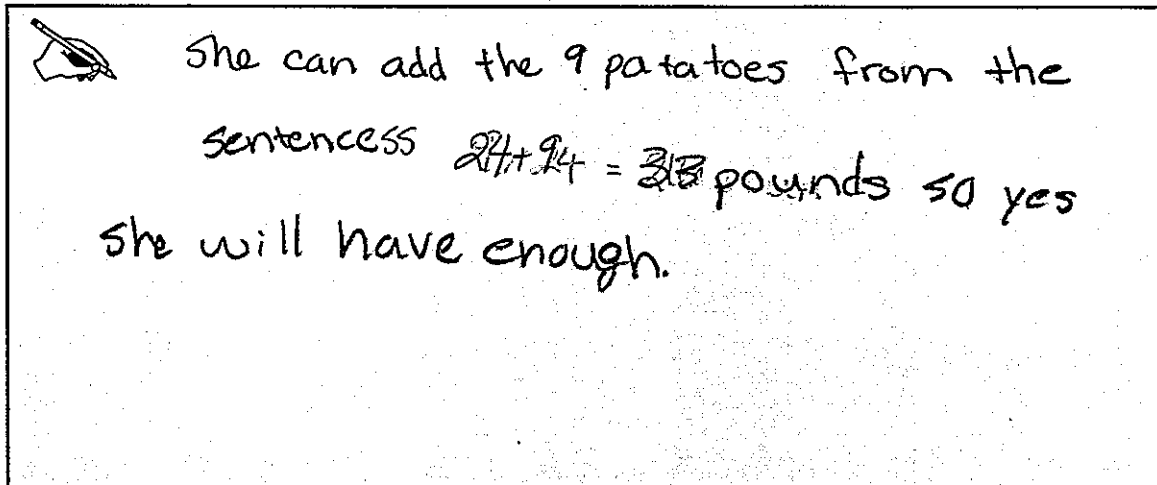 She can add the 9 patatoes from the
sentencess 24+94 = pounds so yes
she will have enough.